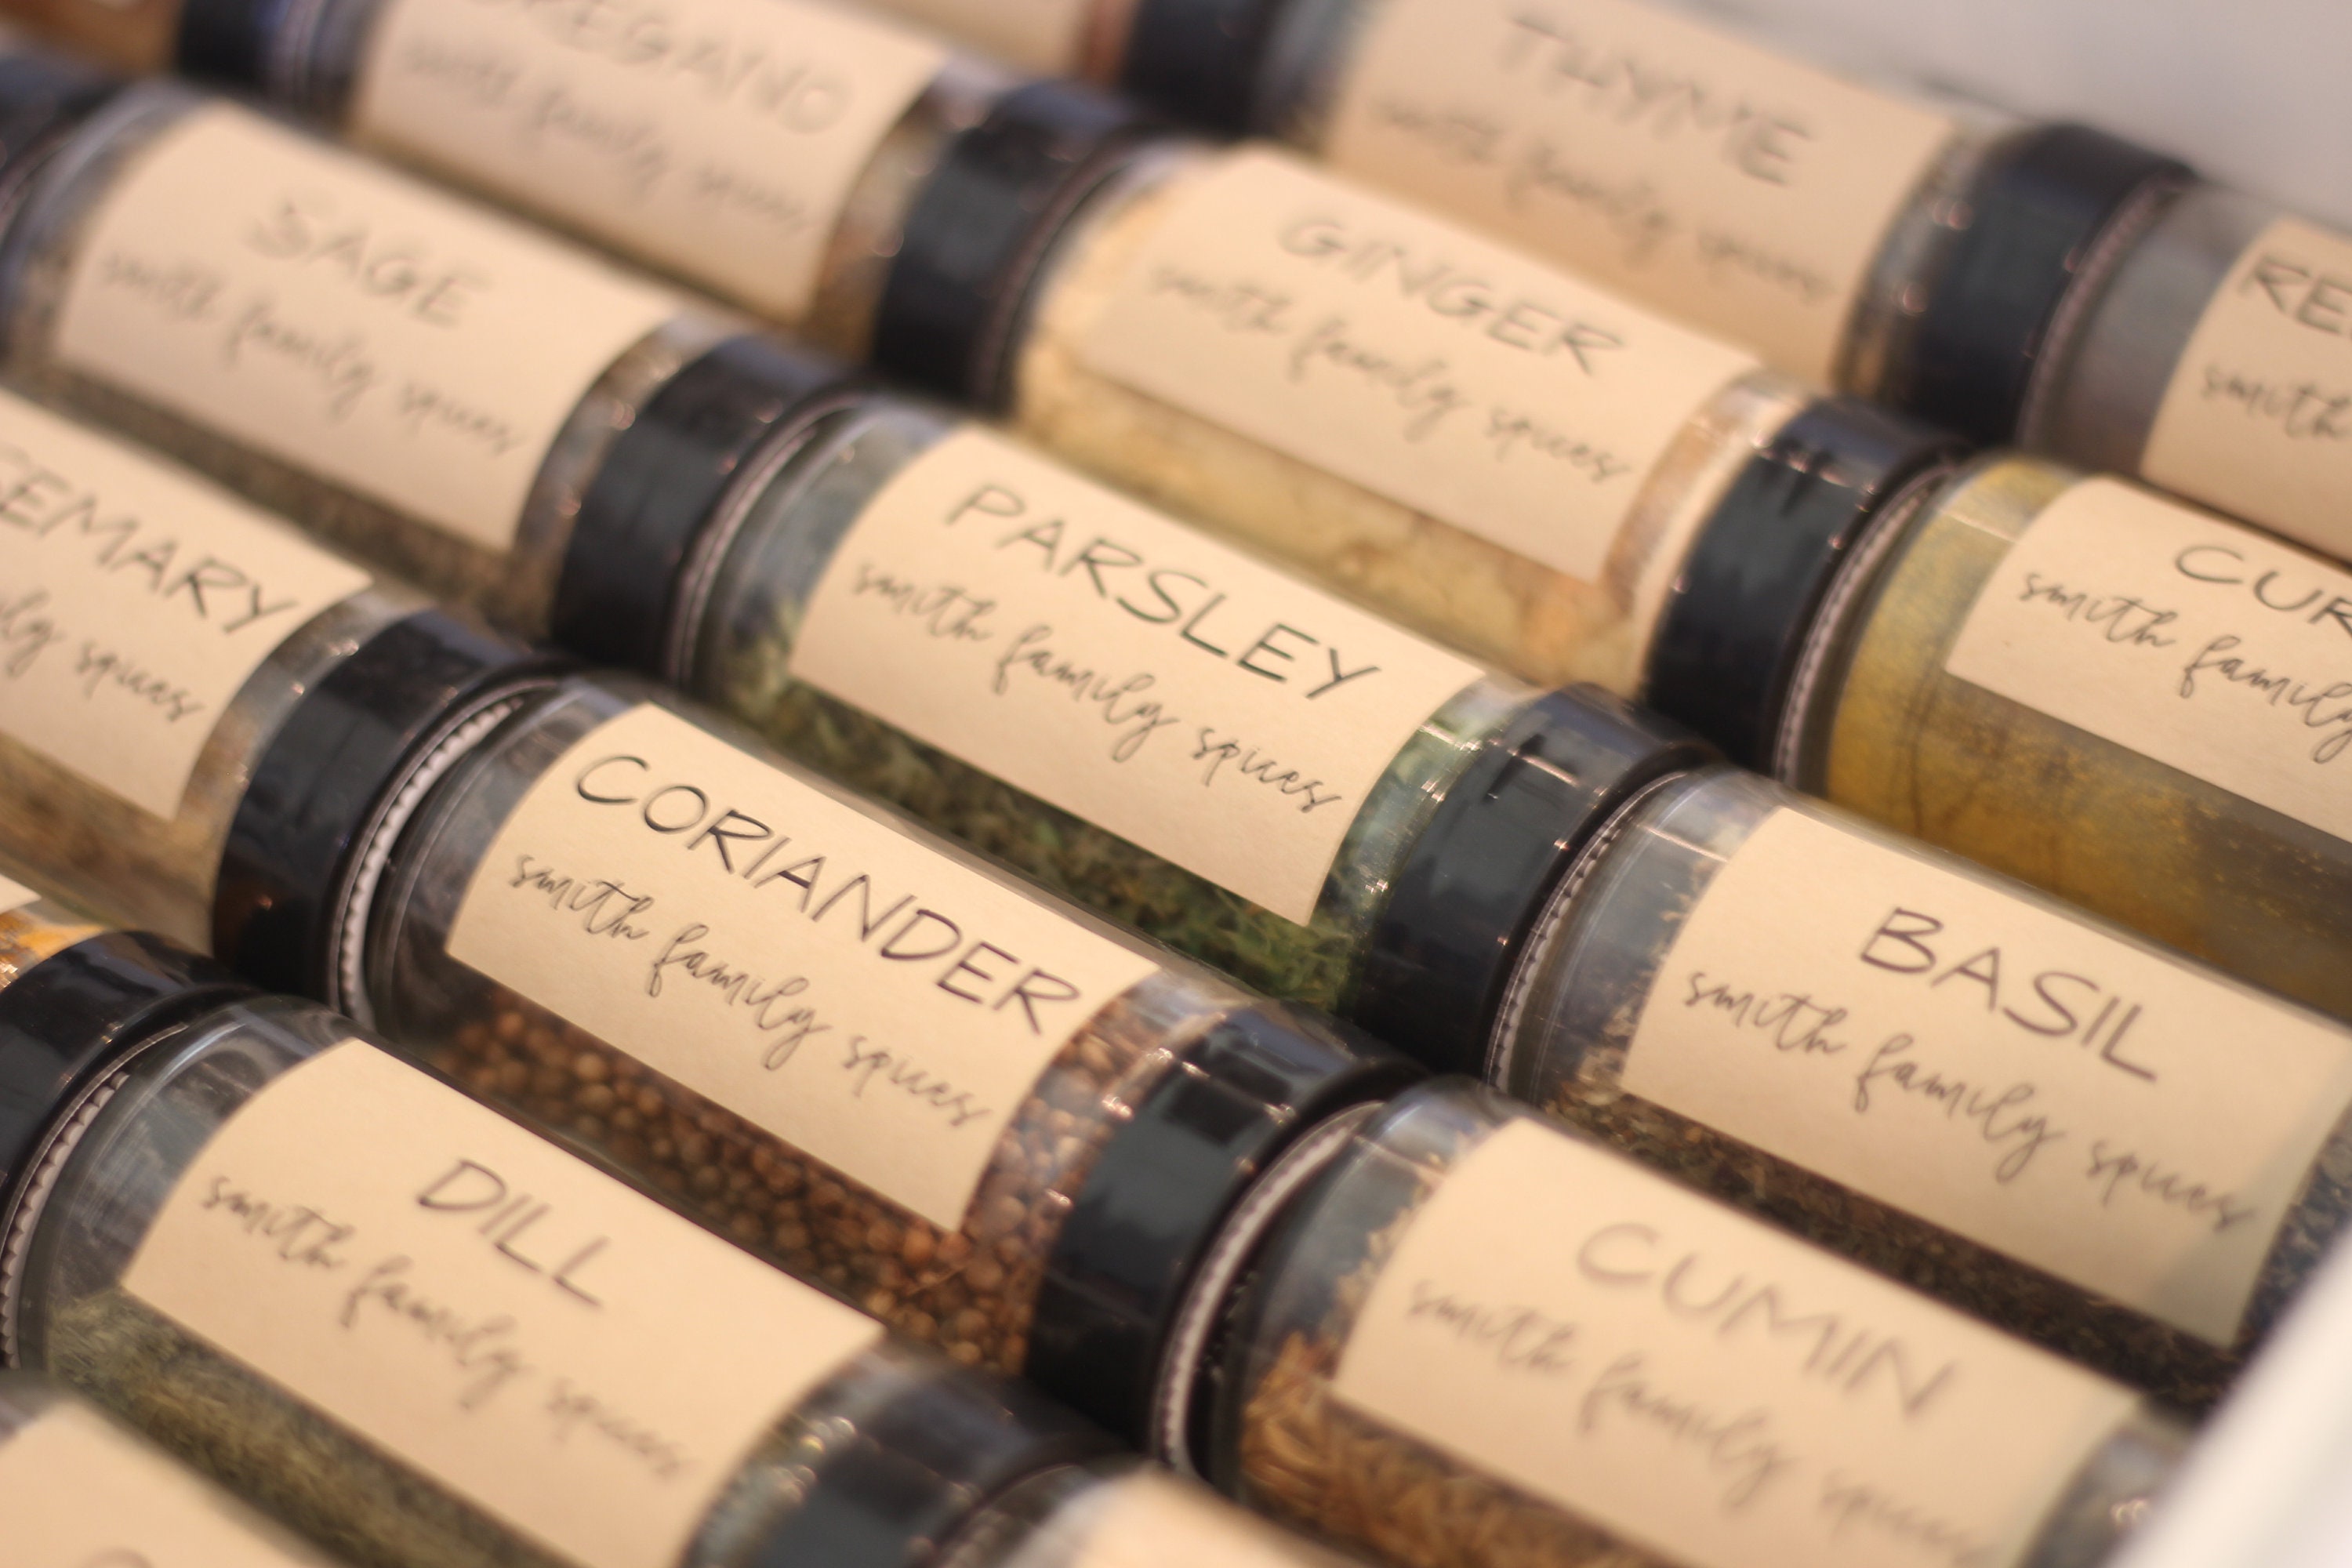 OREGANO
smith family spices
THYME
smith family spices
SAGE
smith family spices
GINGER
smith family spices
RE
smith
EMARY
spices
PARSLEY
smith family spices
CUR
smith family
CORIANDER
smith family spices
BASIL
smith family spices
DILL
smith family spices
CUMIN
smith family spices